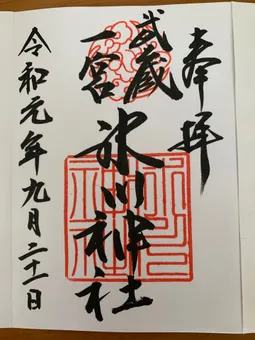 奉拝
武蔵
一宮
氷川神社
令和元年九月二十一日